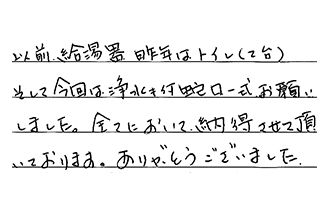 以前、給湯器 昨年はトイレ(2台)
そして今回は浄水き付蛇口一式お願い
しました。全てにおいて、納得させて頂
いております。ありがとうございました。